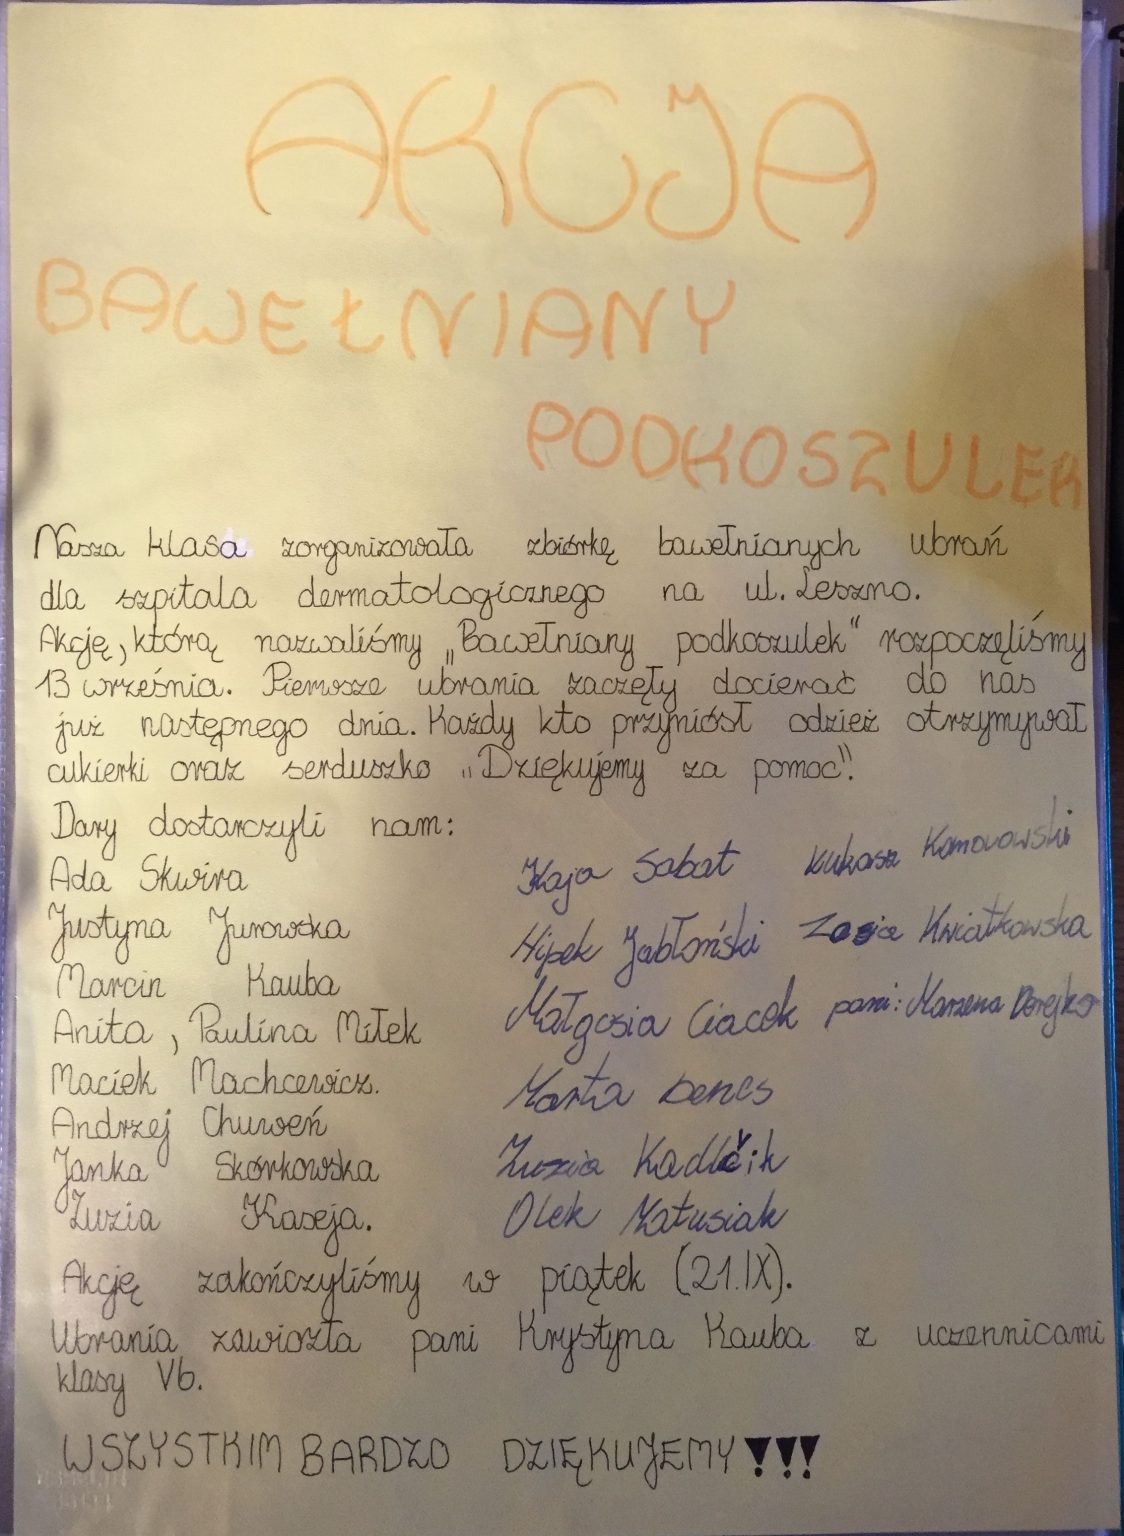 AKCJA
BAWEŁNIANY
PODKOSZULEK
Nasza klasa zorganizowała zbiórkę bawełnianych ubrań
dla szpitala dermatologicznego na ul. Leszno.
Akcję, którą nazwaliśmy „Bawełniany podkoszulek“ rozpoczęliśmy
13 września. Pierwsze ubrania zaczęły docierać do nas
już następnego dnia. Każdy kto przyniósł odzież otrzymywał
cukierki oraz serduszko „Dziękujemy za pomoc“.
Dary dostarczyli nam:
Ada Skwira
Justyna Jurowska
Marcin Kauba
Anita, Paulina Miłek
Maciek Machcewicz.
Andrzej Chuweń
Janka Skórkowska
Zuzia Kaseja.
Kaja Sabat
Hipek Jabłoński
Małgosia Ciacek
Marta Denes
Zuzia Kadlčik
Olek Matusiak
Łukasz Komorowski
Zosia Kwiatkowska
pani: Marzena Derejko
Akcję zakończyliśmy w piątek (21.IX).
Ubrania zawiozła pani Krystyna Kauba z uczennicami
klasy Vb.
WSZYSTKIM BARDZO DZIĘKUJEMY!!!